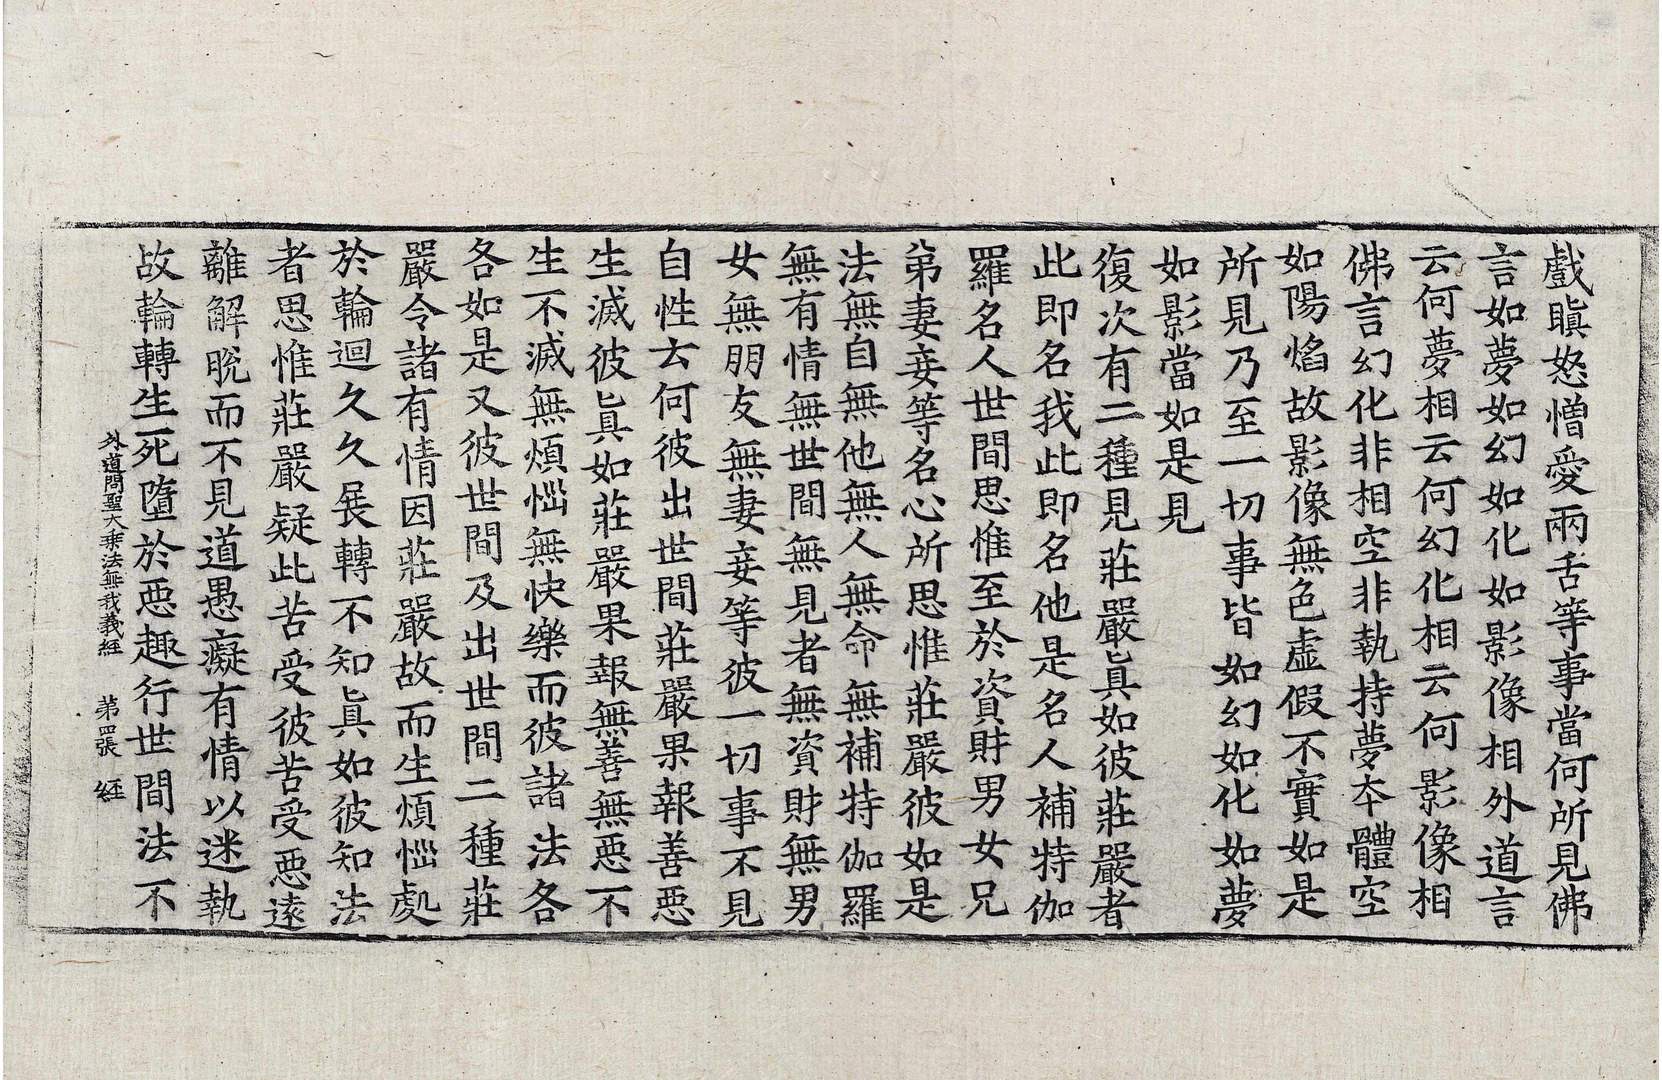 戲瞋怒憎愛兩舌等事當何所見佛
言如夢如幻如化如影像相外道言
云何夢相云何幻化相云何影像相
佛言幻化非相空非執持夢本體空
如陽焰故影像無色虛假不實如是
所見乃至一切事皆如幻如化如夢
如影當如是見
復次有二種見莊嚴眞如彼莊嚴者
此即名我此即名他是名人補特伽
羅名人世間思惟至於資財男女兄
弟妻妾等名心所思惟莊嚴彼如是
法無自無他無人無命無補特伽羅
無有情無世間無見者無資財無男
女無朋友無妻妾等彼一切事不見
自性云何彼出世間莊嚴果報善悪
生滅彼眞如莊嚴果報無善無悪不
生不滅無煩惱無快樂而彼諸法各
各如是又彼世間及出世間二種莊
嚴令諸有情因莊嚴故而生煩惱處
於輪迴久久展轉不知眞如彼知法
者思惟莊嚴疑此苦受彼苦受悪遠
離解脫而不見道愚癡有情以迷執
故輪轉生死墮於悪趣行世間法不
外道問聖大乘法無我義經 第四張 經